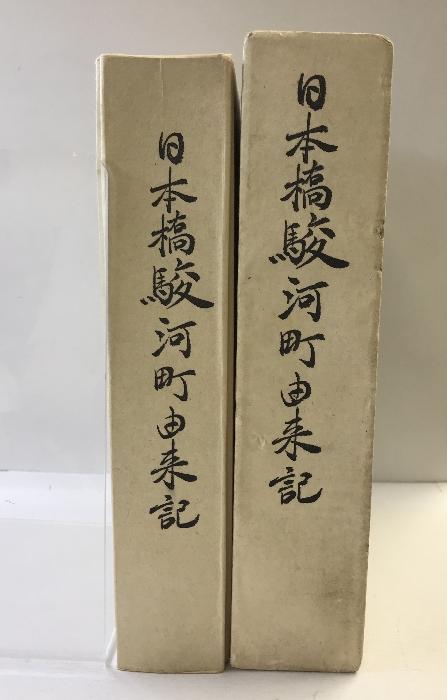 日本橋駿河町由来記
日本橋駿河町由来記